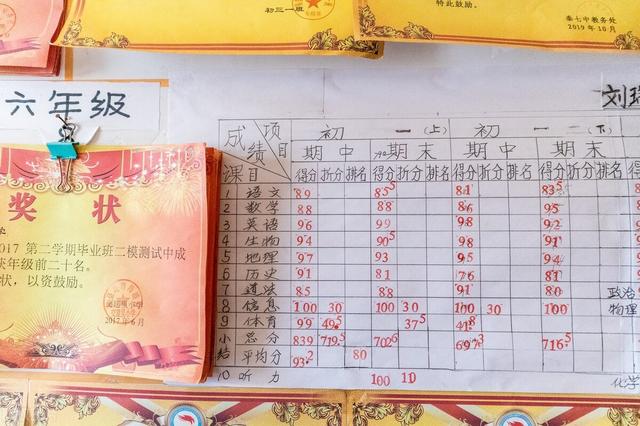 初三一班
特此鼓励。
秦七中教务处
2019年10月
六年级
奖 状
2017 第二学期毕业班二模测试中成
获年级前二十名。
状,以资鼓励。
2017年6月
刘
成绩 项目 课目 初 一(上) 初 一 (下)
期中 期末 期中 期末
得分 折分 排名 得分 折分 排名 得分 折分 排名 得分 折分 排名
1 语文 89 85.5 81 83.5
2 数学 88 88 86 95
3 英语 96 99 98 92
4 生物 94 90.5 98 91
5 地理 97 93 95 94
6 历史 91 81 76 81
7 道法 85 88 91 80 政治
8 信息 100 30 100 30 100 30 100 物理
9 体育 99 49.5 37.5 41.8
小结 总分 839 719.5 702.6 697.3 716.5
平均分 93.2 80
10 听力 100 10 化学